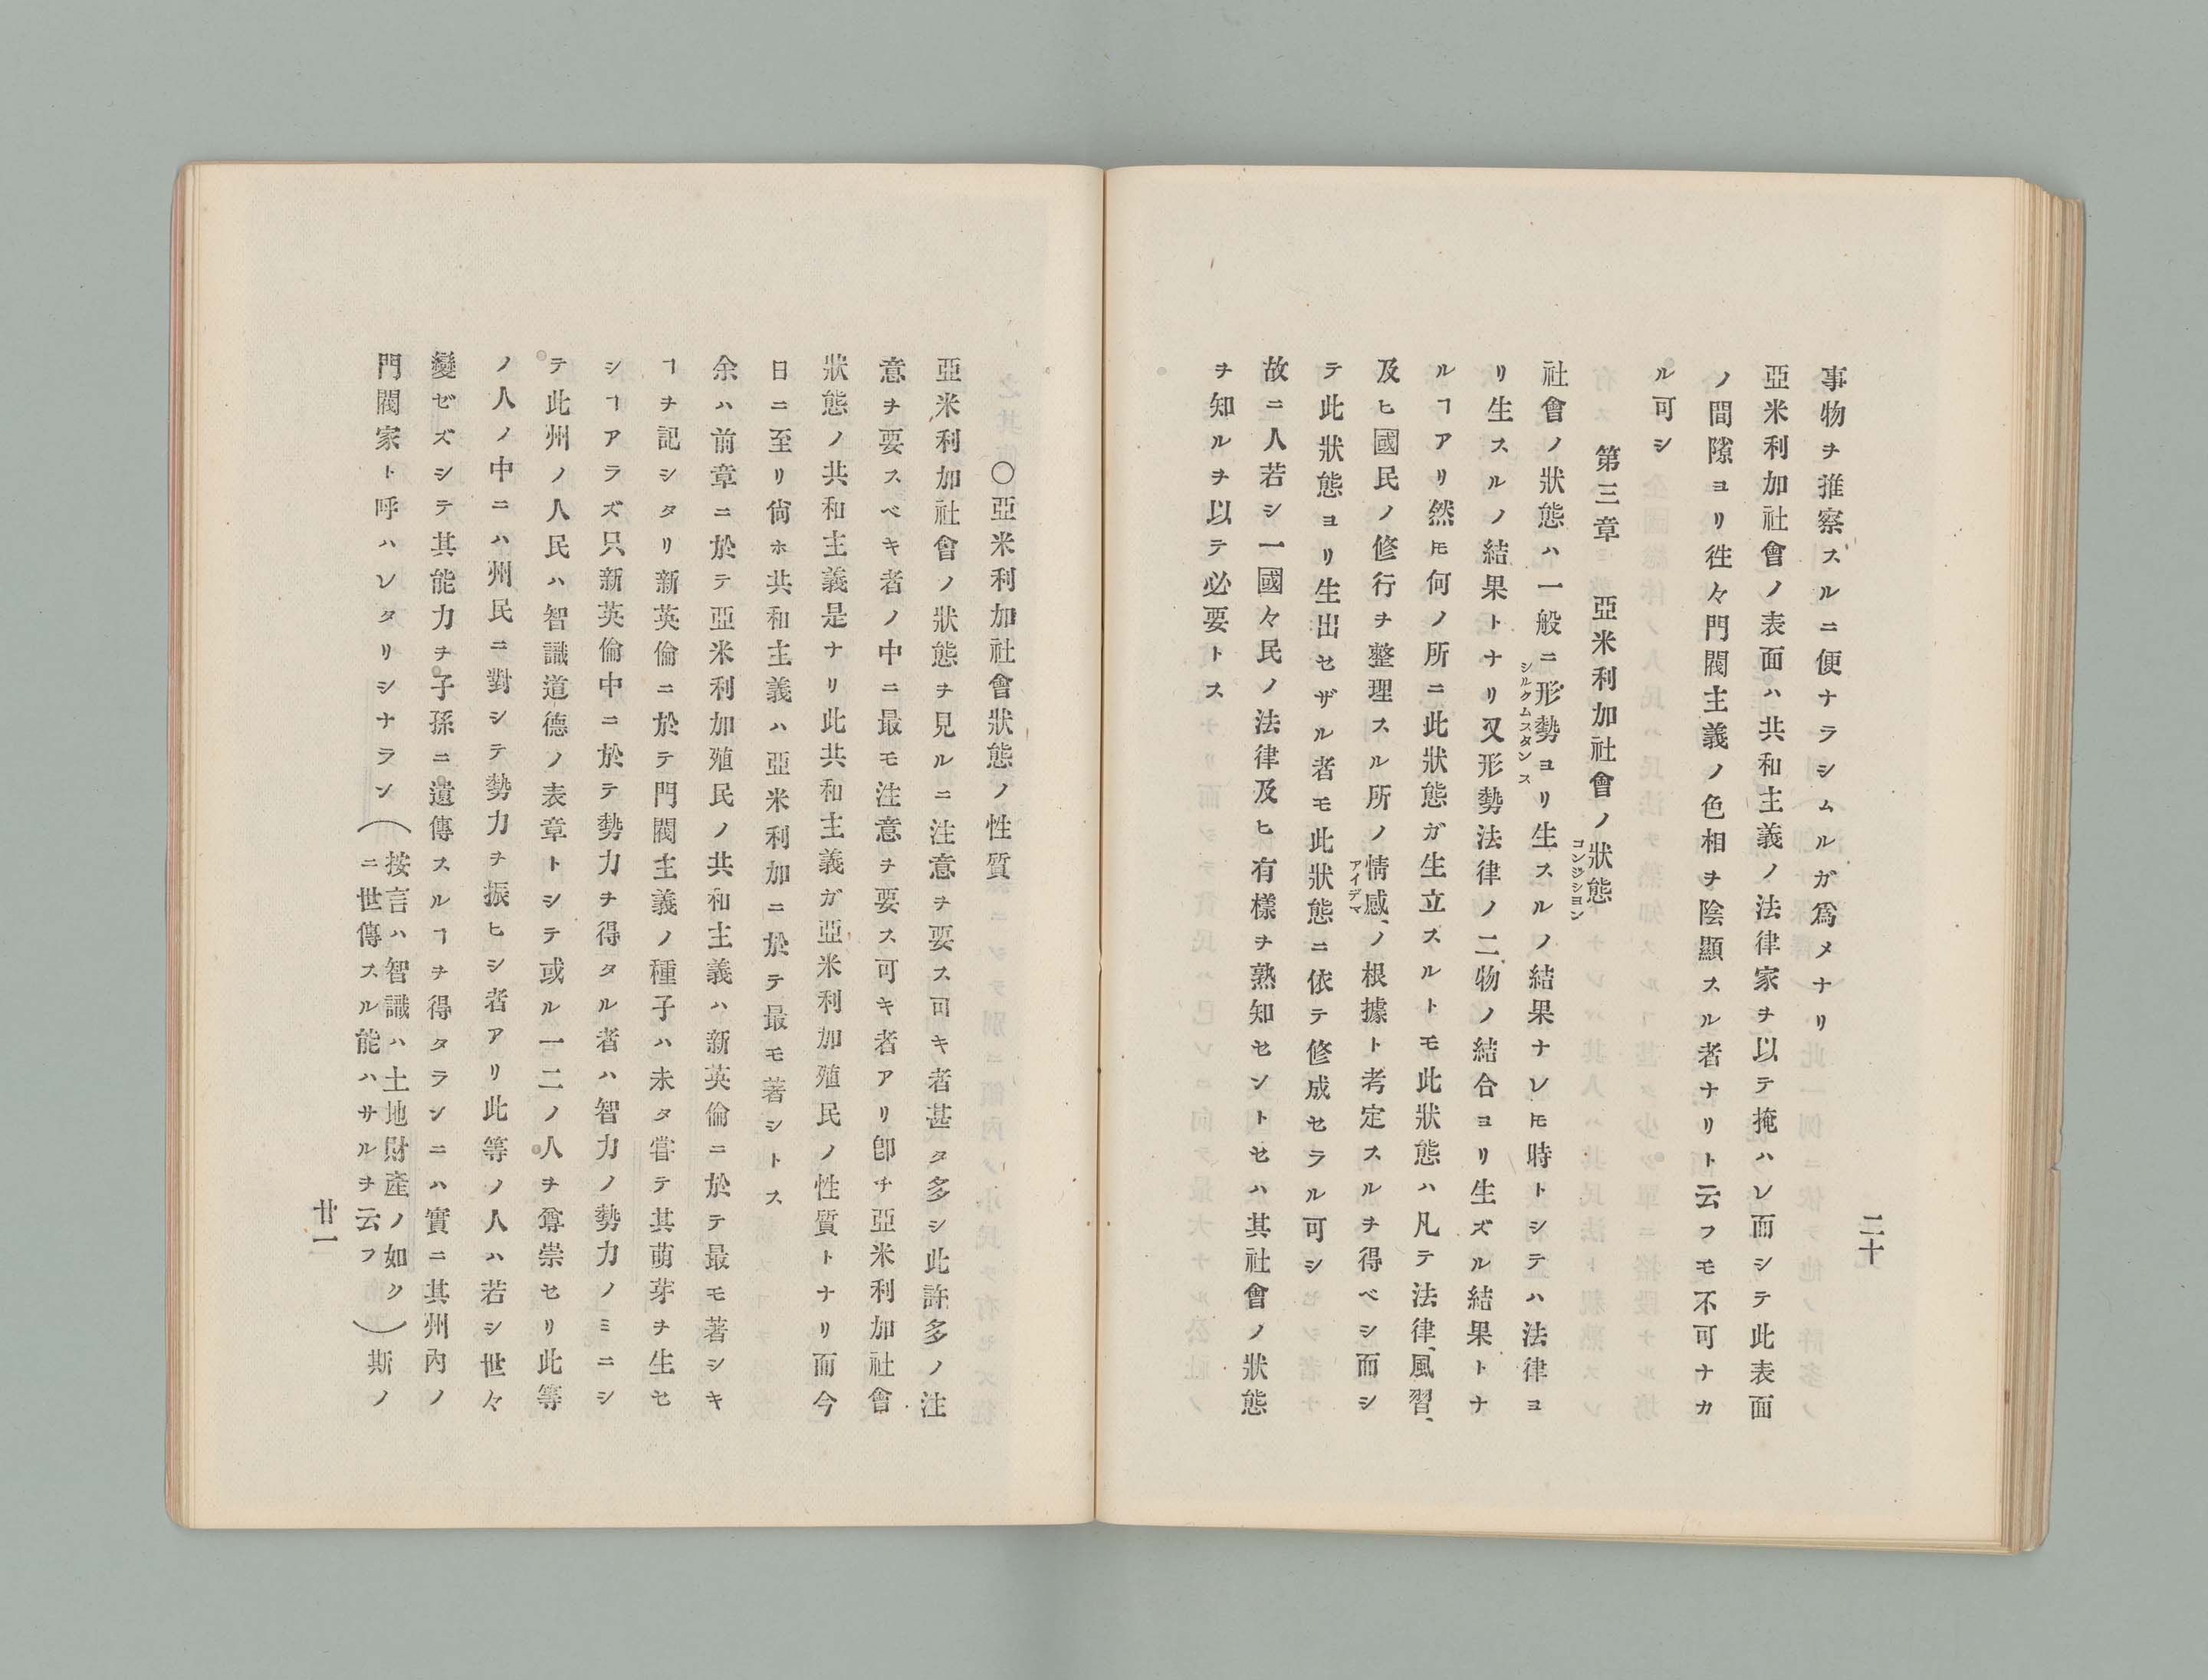 二十
事物ヲ推察スルニ便ナラシムルガ爲メナリ
亞米利加社會ノ表面ハ共和主義ノ法律家ヲ以テ掩ハレ而シテ此表面
ノ間隙ヨリ徃々門閥主義ノ色相ヲ陰顯スル者ナリト云フモ不可ナカ
ル可シ
第三章 亞米利加社會ノ狀態
コンジシヨン
社會ノ狀態ハ一般ニ形勢ヨリ生スルノ結果ナレヒ時トシテハ法律ヨ
シルクムスタンス
リ生スルノ結果トナリ又形勢法律ノ二物ノ結合ヨリ生ズル結果トナ
ルヿアリ然ヒ何ノ所ニ此狀態ガ生立スルトモ此狀態ハ凡テ法律、風習、
及ヒ國民ノ修行ヲ整理スル所ノ情感、ノ根據ト考定スルヲ得ベシ而シ
アイデマ
テ此狀態ヨリ生出セザル者モ此狀態ニ依テ修成セラル可シ
故ニ人若シ一國々民ノ法律及ヒ有樣ヲ熟知セントセハ其社會ノ狀態
ヲ知ルヲ以テ必要トス
○亞米利加社會狀態ノ性質
亞米利加社會ノ狀態ヲ見ルニ注意ヲ要ス可キ者甚タ多シ此許多ノ注
意ヲ要スベキ者ノ中ニ最モ注意ヲ要ス可キ者アリ卽チ亞米利加社會
狀態ノ共和主義是ナリ此共和主義ガ亞米利加殖民ノ性質トナリ而今
日ニ至リ尙ホ共和主義ハ亞米利加ニ於テ最モ著シトス
余ハ前章ニ於テ亞米利加殖民ノ共和主義ハ新英倫ニ於テ最モ著シキ
ヿヲ記シタリ新英倫ニ於テ門閥主義ノ種子ハ未タ嘗テ其萌芽ヲ生セ
シヿアラズ只新英倫中ニ於テ勢力ヲ得タル者ハ智力ノ勢力ノミニシ
テ此州ノ人民ハ智識道德ノ表章トシテ或ル一二ノ人ヲ尊崇セリ此等
ノ人ノ中ニハ州民ニ對シテ勢力ヲ振ヒシ者アリ此等ノ人ハ若シ世々
變ゼズシテ其能力ヲ子孫ニ遺傳スルヿヲ得タランニハ實ニ其州內ノ
門閥家ト呼ハレタリシナラン(按言ハ智識ハ土地財產ノ如クニ世傳スル能ハサルヲ云フ)斯ノ
廿一